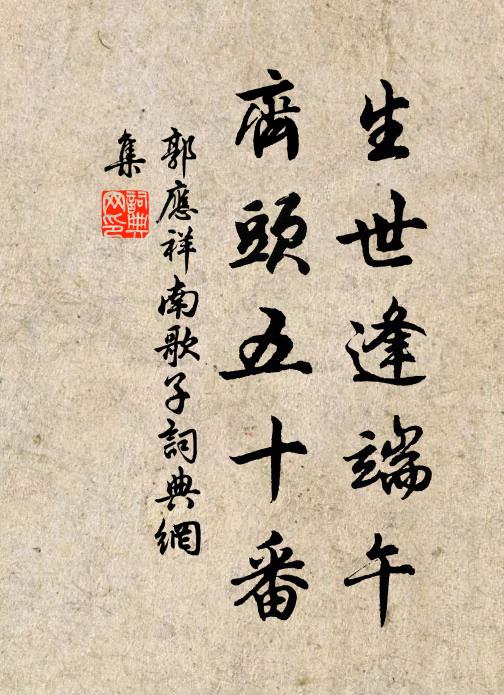 生世逢端午
齊頭五十番
郭應祥南歌子詞典網
集
詞典網印